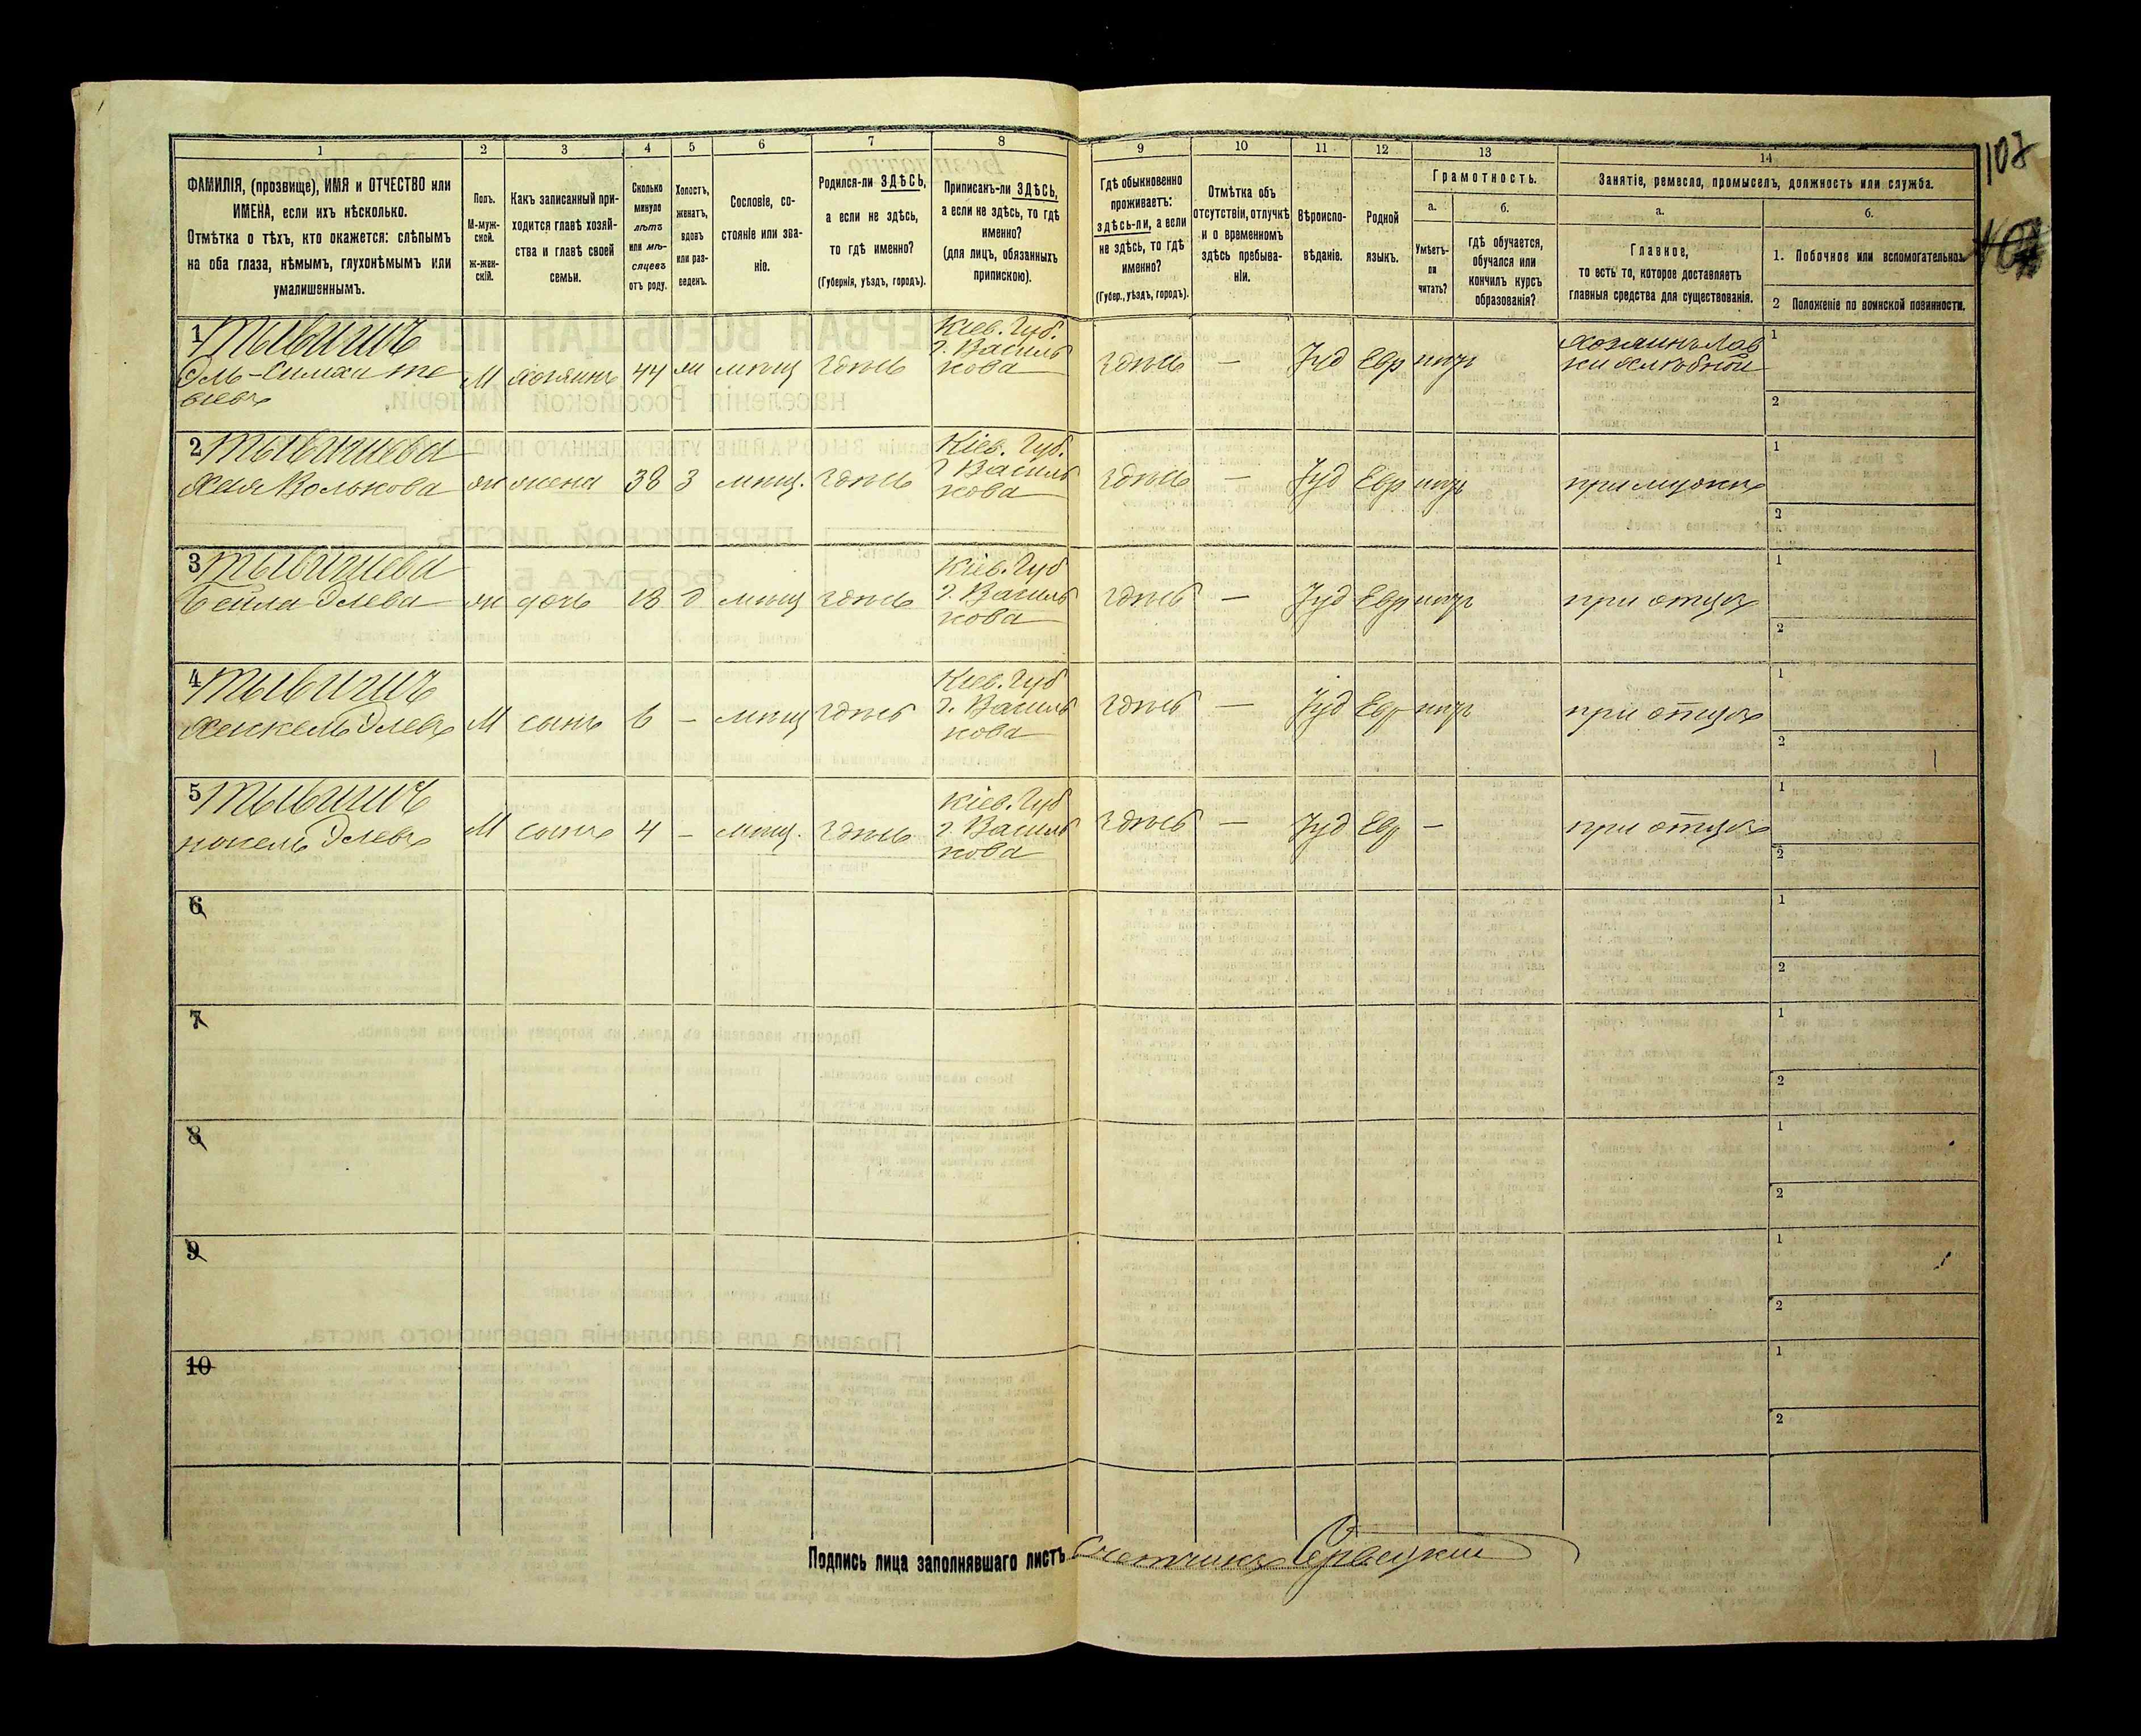 108
1
ФАМИЛІЯ, (прозвище), ИМЯ и ОТЧЕСТВО или
ИМЕНА, если ихъ нѣсколько.
Отмѣтка о тѣхъ, кто окажется: слѣпымъ
на оба глаза, нѣмымъ, глухонѣмымъ или
умалишеннымъ.
2
Полъ.
М-муж-
ской.
ж-жен-
скій.
3
Какъ записанный при-
ходится главѣ хозяй-
ства и главѣ своей
семьи.
4
Сколько
минуло
лѣтъ
или мѣ-
сяцевъ
отъ роду.
5
Холостъ,
женатъ,
вдовъ
или раз-
веденъ.
6
Сословіе, со-
стояніе или зва-
ніе.
7
Родился-ли ЗДѢСЬ,
а если не здѣсь,
то гдѣ именно?
(Губернія, уѣздъ, городъ).
8
Приписанъ-ли ЗДѢСЬ,
а если не здѣсь, то гдѣ
именно?
(для лицъ, обязанныхъ
припискою).
9
Гдѣ обыкновенно
проживаетъ:
здѣсь-ли, а если
не здѣсь, то гдѣ
именно?
(Губер., уѣздъ, городъ).
10
Отмѣтка объ
отсутствіи, отлучкѣ
и о временномъ
здѣсь пребыва-
ніи.
11
Вѣроиспо-
вѣданіе.
12
Родной
языкъ.
13
Грамотность.
а.
Умѣетъ-
ли
читать?
б.
гдѣ обучается,
обучался или
кончилъ курсъ
образованія?
14
Занятіе, ремесло, промыселъ, должность или служба.
а.
Главное,
то есть то, которое доставляетъ
главныя средства для существованія.
б.
1. Побочное или вспомогательное.
2 Положеніе по воинской повинности.
1
Эль-Симха Те
віевъ
М
хозяинъ
44
ж
мѣщ
здѣсь
Кіев. Губ.
г. Василь
кова
здѣсь
—
Іуд
Евр
Хозяинъ Лав
ки хлѣбной
1
2
2
Хая Волькова
ж
жена
38
З
мѣщ.
здѣсь
Кіев. Губ.
г. Василь
кова
здѣсь
—
Іуд
Евр
при мужѣ
1
2
3
Бейла Элева
ж
дочь
18
д
мѣщ
здѣсь
Кіев. Губ
г. Василь
кова
здѣсь
—
Іуд
Евр
при отцѣ
1
2
4
Хскель Элевъ
М
сынъ
6
—
мѣщ
здѣсь
Кіев. Губ
г. Василь
кова
здѣсь
—
Іуд
Евр
при отцѣ
1
2
5
Элевъ
М
сынъ
4
—
мѣщ.
здѣсь
Кіев. Губ
г. Василь
кова
здѣсь
—
Іуд
Евр
—
при отцѣ
1
2
6
1
2
7
1
2
8
1
2
9
1
2
10
1
2
Подпись лица заполнявшаго листъ Счетчикъ